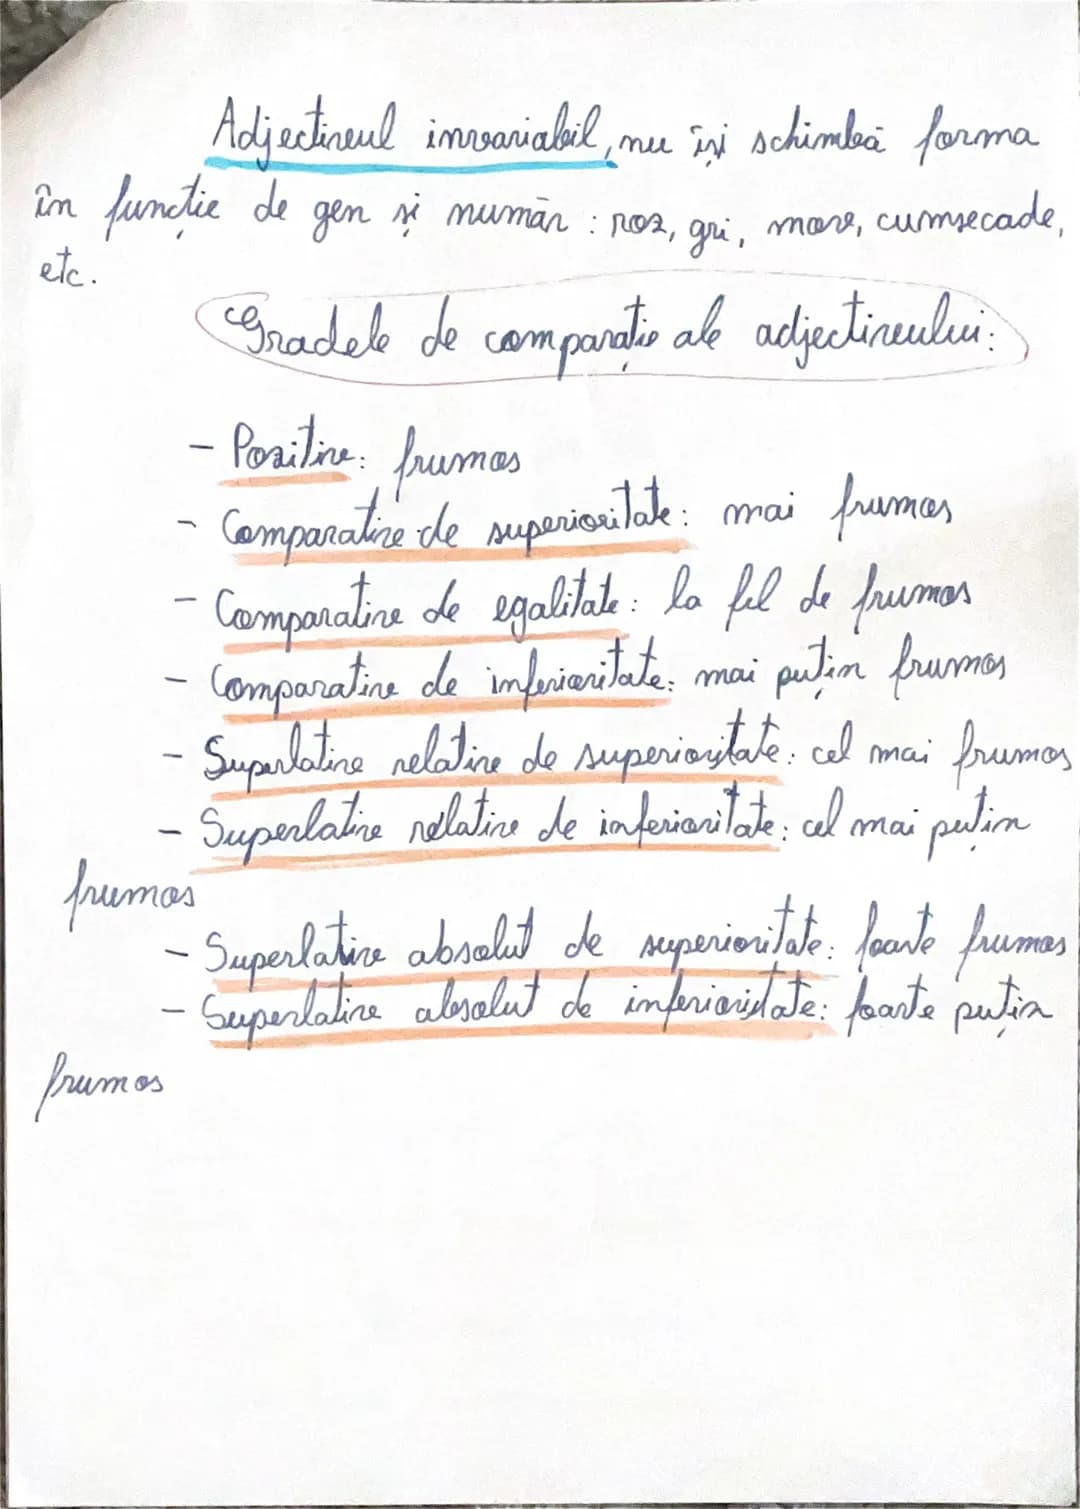 Adjectivul invariabil, nu își schimbă forma
în funcție de gen și număr: roz, gri, mov, cumsecade,
etc.
Gradele de comparație ale adjectivului:
- Pozitiv: frumos
- Comparativ de superioritate: mai frumos
- Comparativ de egalitate: la fel de frumos
- Comparativ de inferioritate: mai puțin frumos
- Superlativ relativ de superioritate: cel mai frumos
- Superlativ relativ de inferioritate: cel mai puțin
frumos
- Superlativ absolut de superioritate: foarte frumos
- Superlativ absolut de inferioritate: foarte puțin
frumos